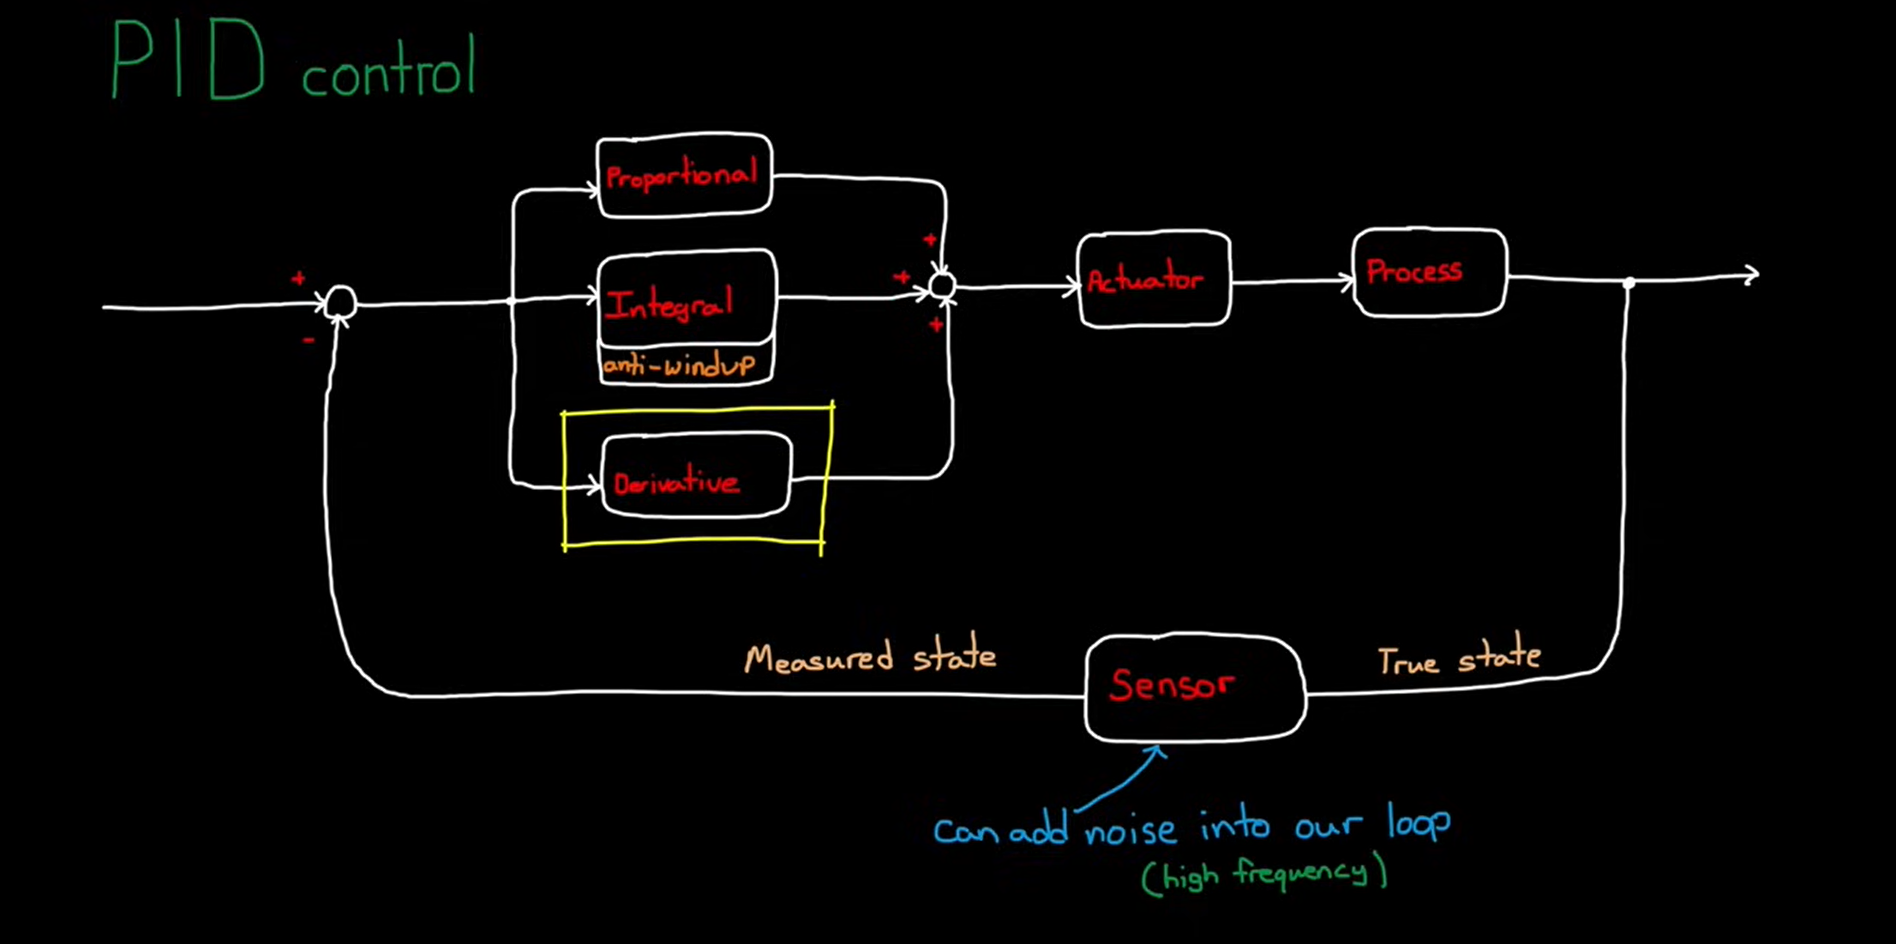 PID control
Proportional
+
+
+
Integral
+
-
anti-windup
Actuator
Process
Derivative
Measured state
Sensor
True state
can add noise into our loop
(high frequency)